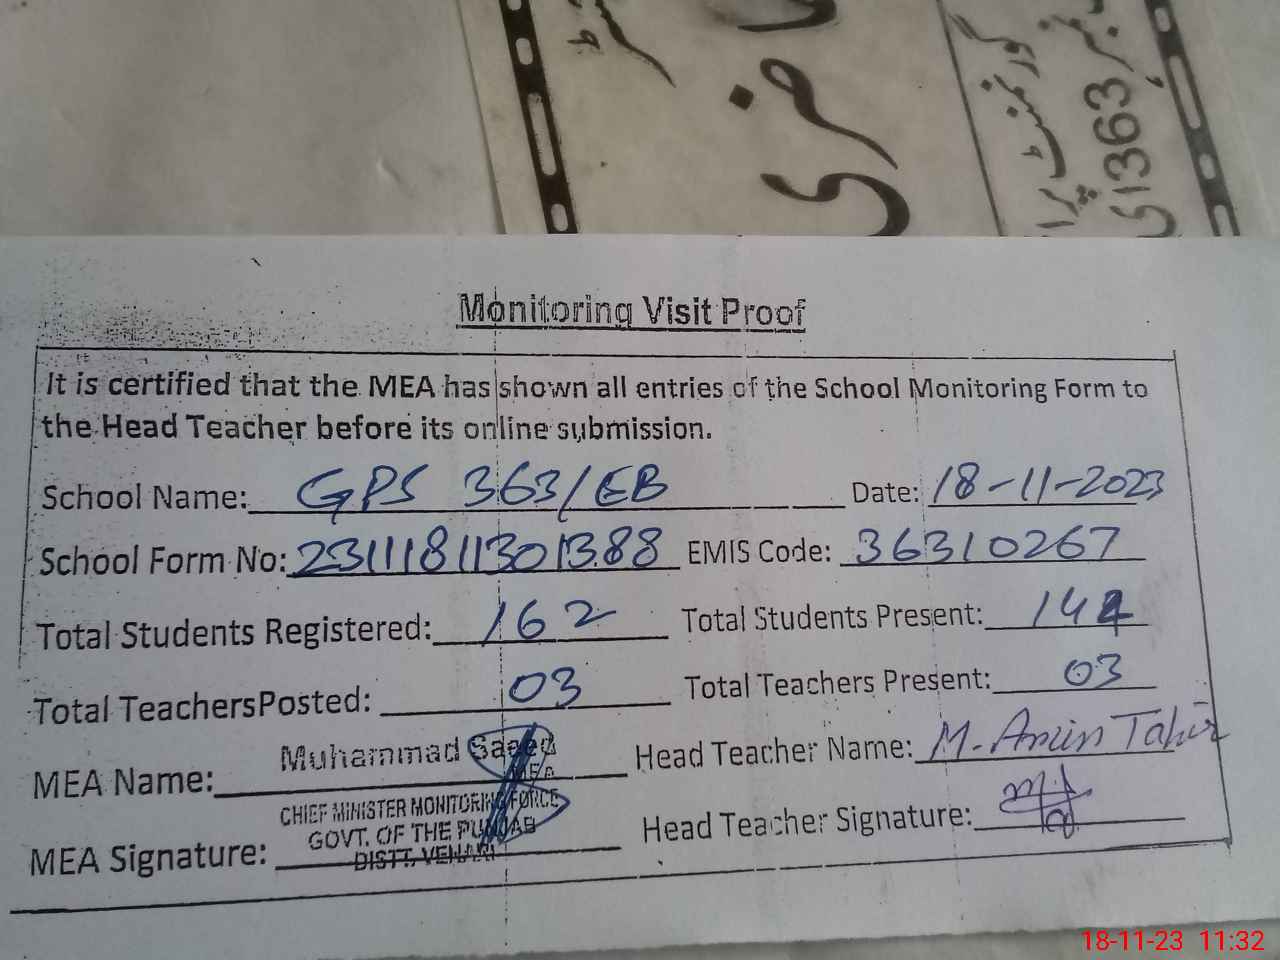 گورنمنٹ پرا
363ای
Monitoring Visit Proof
It is certified that the MEA has shown all entries of the School Monitoring Form to
the Head Teacher before its online submission.
School Name: GPS 363/EB Date: 18-11-2023
School Form No: 23111811301388 EMIS Code: 36310267
Total Students Registered: 162 Total Students Present: 142
Total Teachers Posted: 03 Total Teachers Present: 03
MEA Name: Muhammad Saeed Head Teacher Name: M. Amin Tahir
MEA
CHIEF MINISTER MONITORING FORCE
GOVT. OF THE PUNJAB
DISTT. VEHARI
MEA Signature: Head Teacher Signature:
18-11-23 11:32